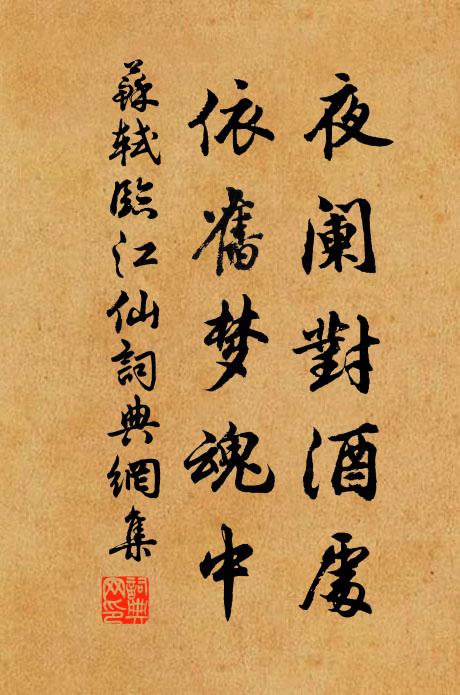 夜阑對酒處
依舊梦魂中
蘇軾臨江仙詞典網集
詞典
网印